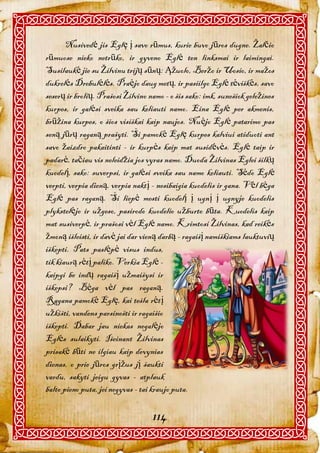 Nusivedė jis Eglę į savo rūmus, kurie buvo jūros dugne. Žalčio
rūmuose nieko netrūko, ir gyveno Eglė ten linksmai ir laimingai.
Susilaukė jie su Žilvinu trijų sūnų: Ąžuolo, Beržo ir Uosio, ir mažos
dukrelės Drebulėlės. Praėjo daug metų, ir pasiilgo Eglė tėviškės, savo
seserų ir brolių. Prašosi Žilvino namo - o šis sako: imk, sunešiok geležines
kurpes, ir galėsi sveika sau keliauti namo. Eina Eglė per akmenis,
brūžina kurpes, o šios visiškai kaip naujos. Nuėjo Eglė patarimo pas
seną jūrų raganą prašyti. Ši pamokė Eglę kurpes kalviui atiduoti ant
savo žaizdro pakaitinti - ir kurpės kaip mat susidėvės. Eglė taip ir
padarė, tačiau vis neleidžia jos vyras namo. Duoda Žilvinas Eglei šilkų
kuodelį, sako: suverpsi, ir galėsi sveika sau namo keliauti. Sėdo Eglė
verpti, verpia dieną, verpia naktį - nesibaigia kuodelis ir gana. Vėl bėga
Eglė pas raganą. Ši liepė mesti kuodelį į ugnį: į ugnyje kuodelis
plyksteliėjo ir užgeso, pasirodo kuodelis užburtas būta. Kuodelis kaip
mat susiverpė, ir prašosi vėl Eglė namo. Krimtosi Žilvinas, kad reikės
žmoną išleisti, ir davė jai dar vieną darbą - ragaišį namiškiams lauktuvių
iškepti. Pats paslėpė visus indus,
tik kiaurą rėtį paliko. Verkia Eglė -
kaipgi be indų ragaišį užmaišysi ir
iškepsi? Bėga vėl pas raganą.
Ragana pamokė Eglę, kai tešla rėtį
užkišti, vandens parsinešti ir ragaišio
iškepti. Dabar jau niekas negalėjo
Eglės sulaikyti. Išeinant Žilvinas
prisakė būti ne ilgiau kaip devynias
dienas, o prie jūros grįžus jį šaukti
vardu, sakyti jeigu gyvas - atplauk
balto pieno puta, jei negyvas - tai kraujo puta.
114